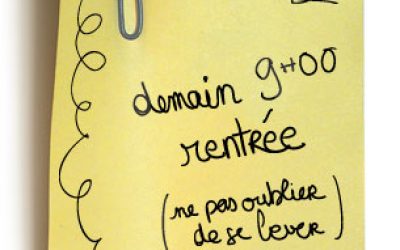 demain 9H00
rentrée
(ne pas oublier
de se lever)